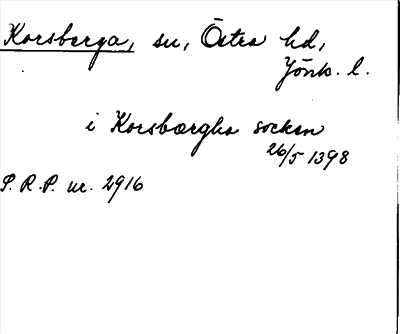 Korsberga, sn, Östra hd,
Jönk. l.
i Korsbærgha socken
26/5 1398
S.R.P. nr. 2916